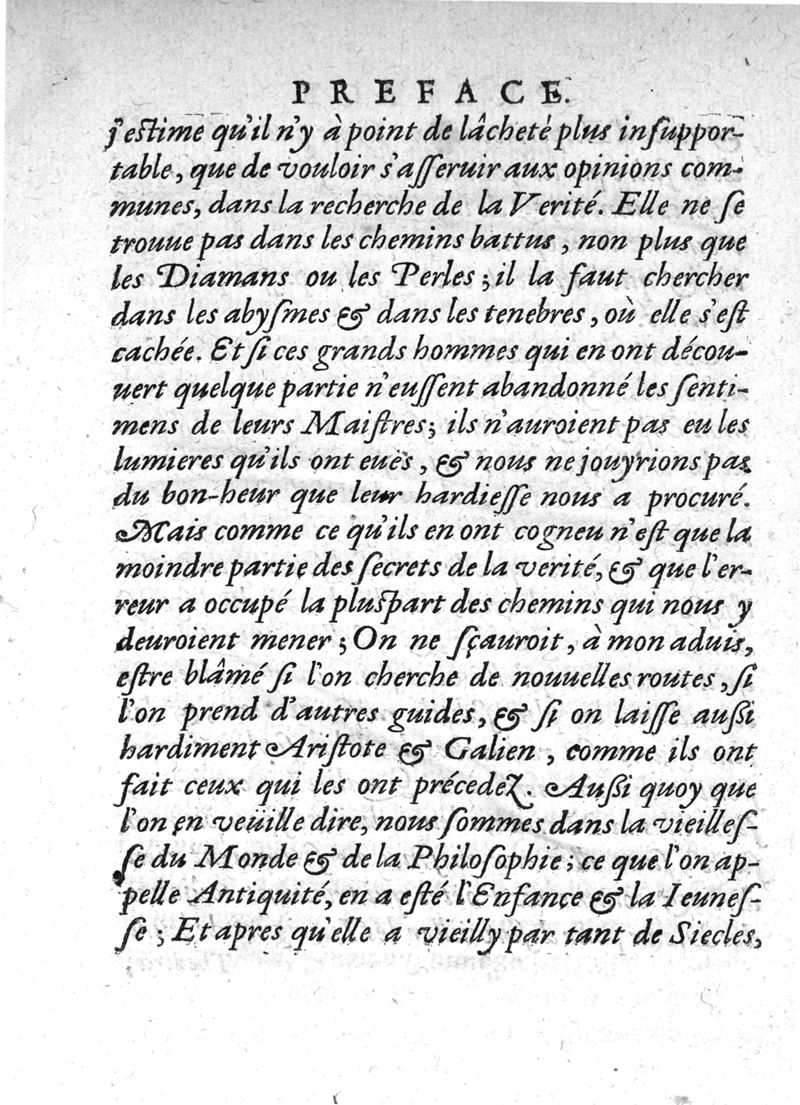 PREFACE.
j'estime qu'il n'y à point de lâcheté plus insuppor-
table, que de vouloir s'asseruir aux opinions com-
munes, dans la recherche de la Verité. Elle ne se
trouue pas dans les chemins battus, non plus que
les Diamans ou les Perles; il la faut chercher
dans les abysmes & dans les tenebres, où elle s'est
cachée. Et si ces grands hommes qui en ont décou-
uert quelque partie n'eussent abandonné les senti-
mens de leurs Maistres; ils n'auroient pas eu les
lumieres qu'ils ont eues, & nous ne jouyrions pas
du bon-heur que leur hardiesse nous a procuré.
Mais comme ce qu'ils en ont cogneu n'est que la
moindre partie des secrets de la verité, & que l'er-
reur a occupé la pluspart des chemins qui nous y
deuroient mener; On ne sçauroit, à mon aduis,
estre blâmé si l'on cherche de nouuelles routes, si
l'on prend d'autres guides, & si on laisse aussi
hardiment Aristote & Galien, comme ils ont
fait ceux qui les ont précedez. Aussi quoy que
l'on en veüille dire, nous sommes dans la vieilles-
se du Monde & de la Philosophie; ce que l'on ap-
pelle Antiquité, en a esté l'Enfance & la Ieunes-
se; Et apres qu'elle a vieilly par tant de Siecles,